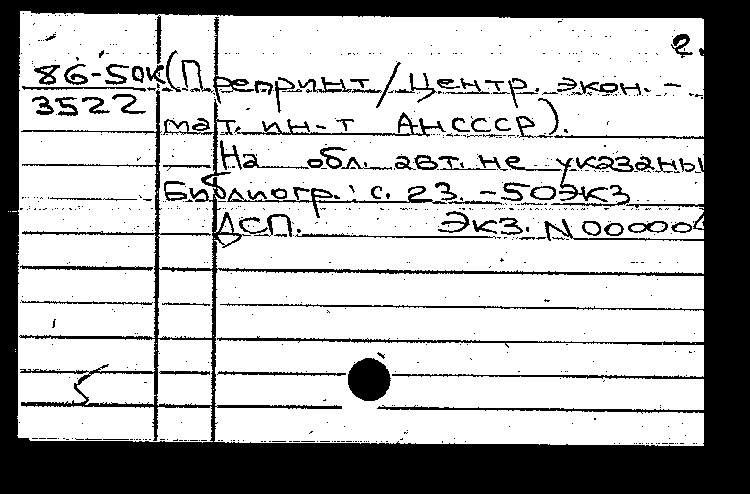 2.
86-50к (Препринт/Центр. экон.-
3522 мат. ин-т АНСССР).
На обл. авт. не указаны
Библиогр.: с. 23. -50ЭКЗ
ДСП. Экз. N 000004
5